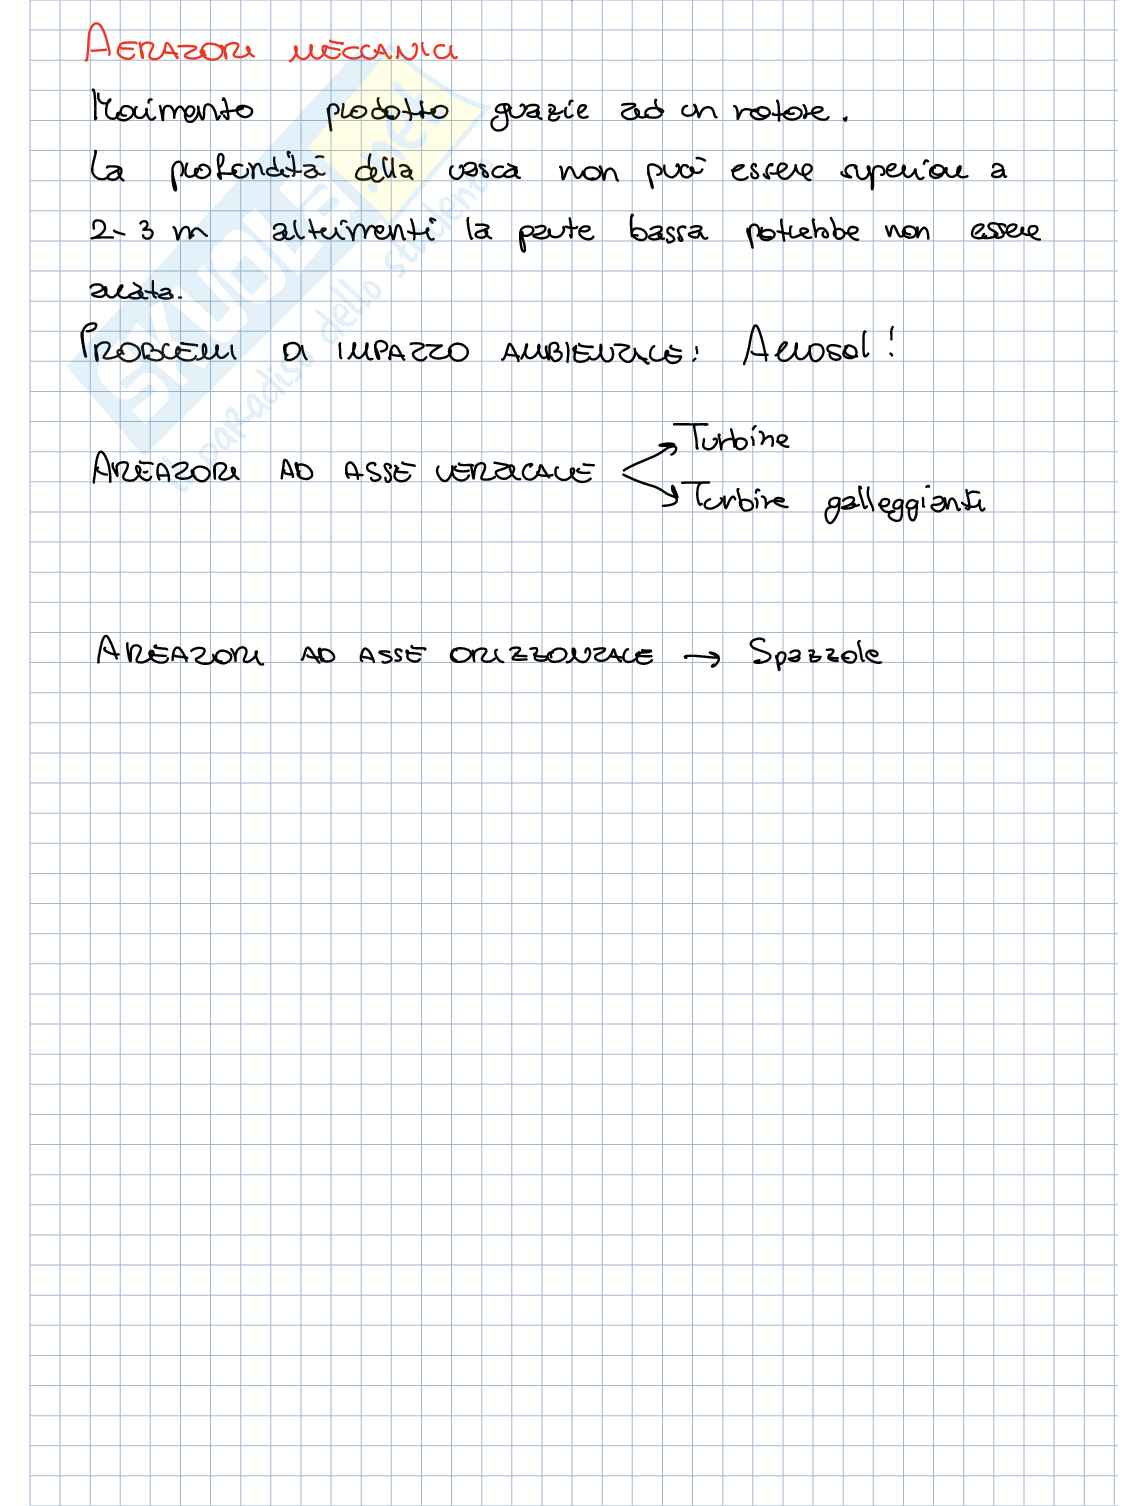 AERATORI MECCANICI
Movimento prodotto grazie ad un rotore.
La profondità della vasca non può essere superiore a
2-3 m altrimenti la parte bassa potrebbe non essere
areata.
PROBLEMI DI IMPATTO AMBIENTALE: Aerosol!
AREATORI AD ASSE VERTICALE
Turbine
Turbine galleggianti
AREATORI AD ASSE ORIZZONTALE → Spazzole
SKUOLA.net
il paradiso dello studente